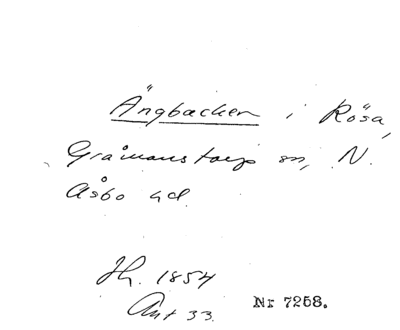 Ängbacken i Rösa,
Gråmanstorps sn, N.
Åsbo hd.
Jh. 1854
Ant 33. Nr 7258.